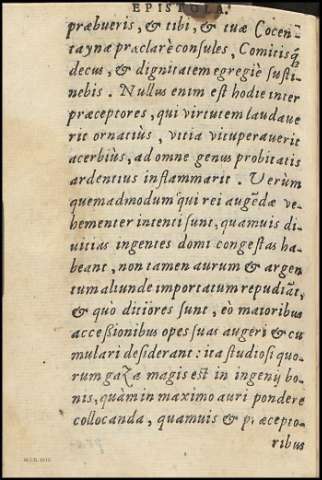 EPISTOLA.
præbueris, & tibi, & tuæ Cocen-
taynæ præclarè consules, Comitisq́;
decus, & dignitatem egregiè susti
nebis. Nullus enim est hodie inter
præceptores, qui virtutem laudaue
rit ornatiùs, vitia vituperauerit
acerbiùs, ad omne genus probitatis
ardentius inflammarit. Verùm
quemadmodum qui rei augẽdæ ve-
hementer intenti sunt, quamuis di-
uitias ingentes domi congestas ha-
beant, non tamen aurum & argen
tum aliunde importatum repudiãt,
& quò ditiores sunt, eò maioribus
accessionibus opes suas augeri & cu
mulari desiderant: ita studiosi quo-
rum gaza magis est in ingenij bo-
nis, quàm in maximo auri pondere
collocanda, quamuis & præcepto-
ribus